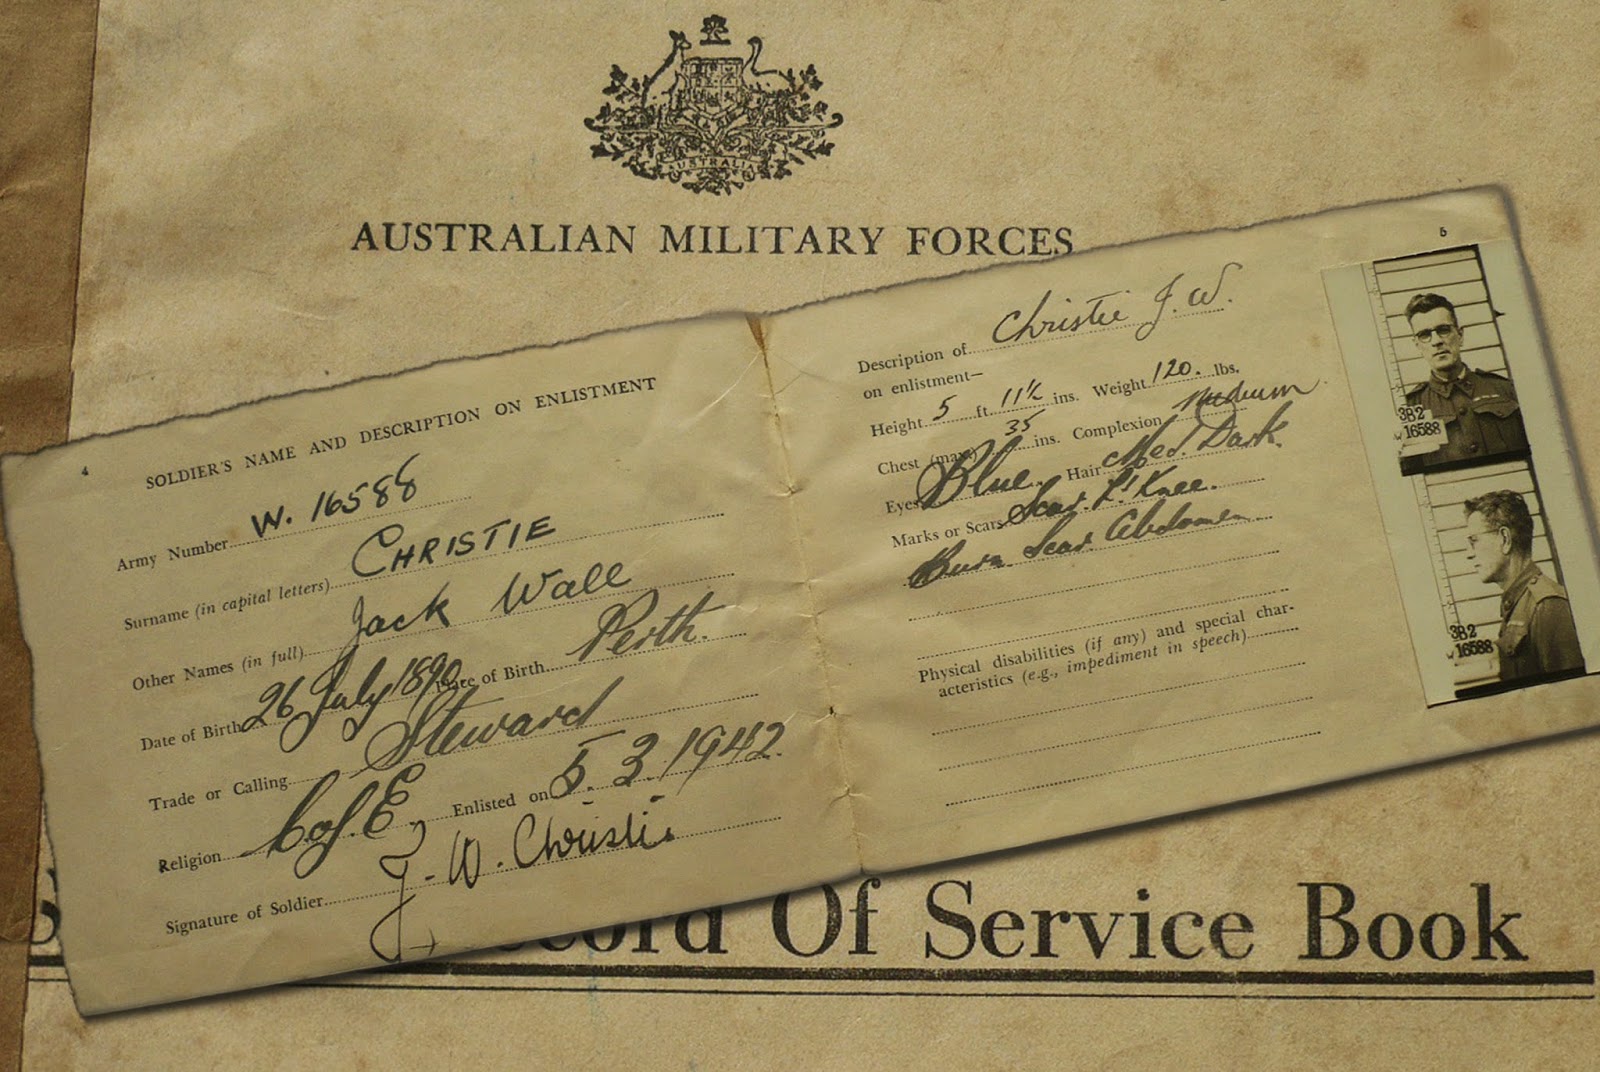 AUSTRALIA
AUSTRALIAN MILITARY FORCES
4
SOLDIER'S NAME AND DESCRIPTION ON ENLISTMENT
Army Number W. 16588
Surname (in capital letters) CHRISTIE
Other Names (in full) Jack Wall
Date of Birth 26 July 1890 Place of Birth Perth.
Trade or Calling Steward
Religion C of E. Enlisted on 5.3.1942.
Signature of Soldier J. W. Christie
5
Description of Christie J. W.
on enlistment—
Height 5 ft. 11½ ins. Weight 120. lbs.
Chest (max) 35 ins. Complexion Medium
Eyes Blue Hair Med. Dark.
Marks or Scars Scar. L! Knee.
Burn Scar Abdomen
Physical disabilities (if any) and special char-
acteristics (e.g., impediment in speech)
3B2
W 16588
3B2
W 16588
Record Of Service Book